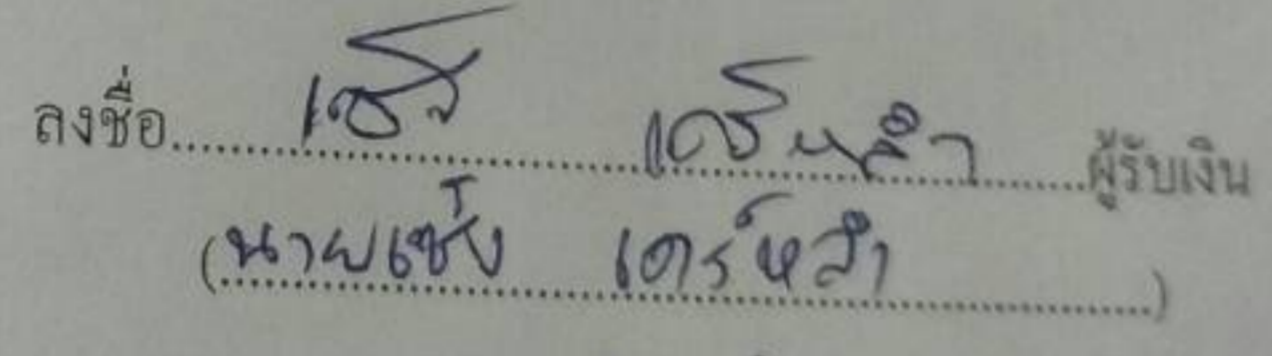 ลงชื่อ เซ้ง เดร์หลำ ผู้รับเงิน
(นายเซ้ง เดร์หลำ)